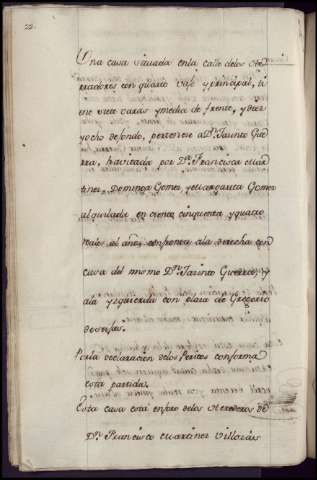 Una casa situada enla calle delos He-
rradores con quarto vajo y principal, ti-
ene siete varas y media de frente, y diez
y ocho de fondo, pertenece a Dn. Jacinto Gue-
rra, havitada por Da. Francisca Mar-
tinez, Dominga Gomez, y Margarita Gomez
alquilada en ciento cinquenta y quatro
reales al año, confronta ala derecha con
casa del mismo Dn. Jacinto Guerra, y
ala yzquierda con plaza de Gregorio
Por la declaracion delos Peritos conforma
esta partida.
Esta casa está enforo delos Herederos de
Dn. Francisco Martinez Villozás